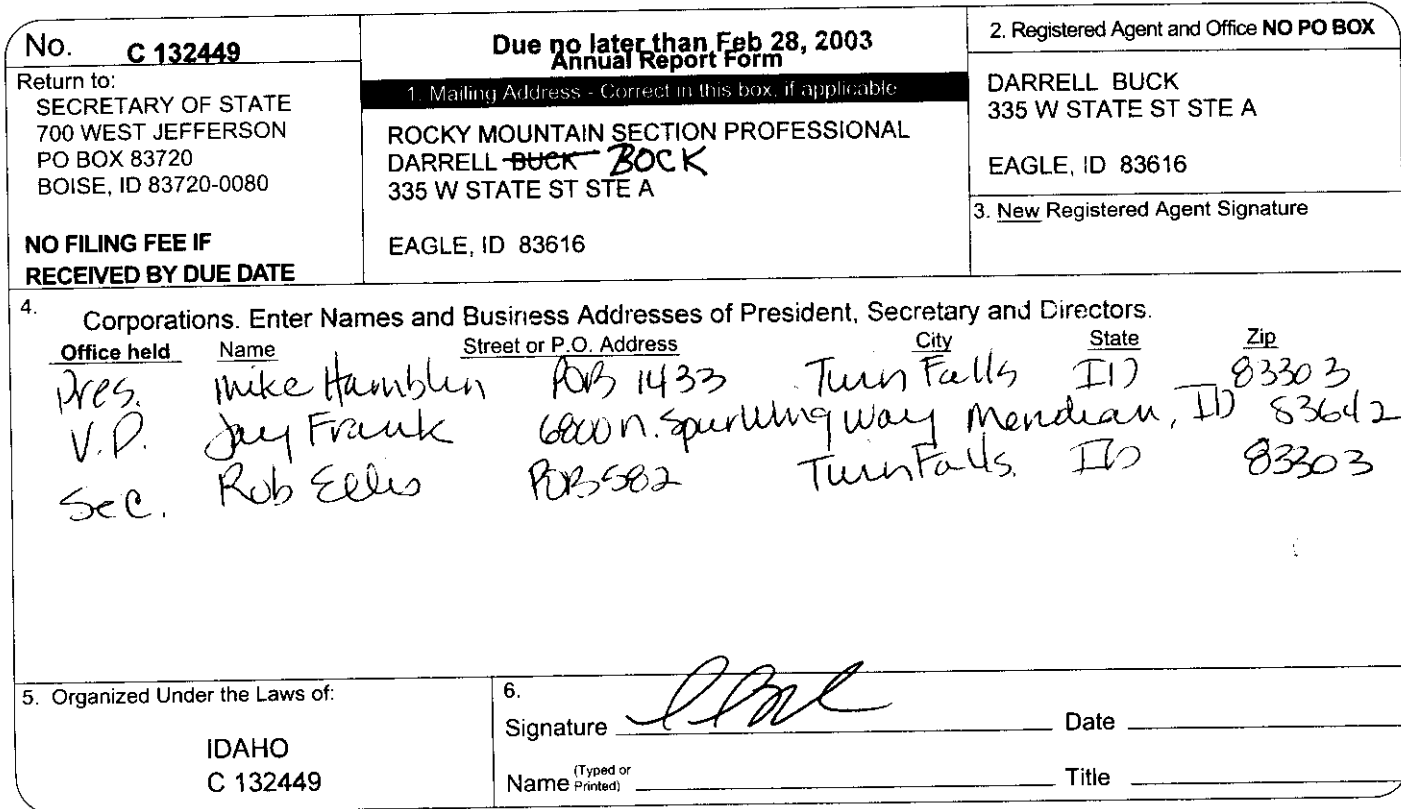 No. C 132449
Return to:
SECRETARY OF STATE
700 WEST JEFFERSON
PO BOX 83720
BOISE, ID 83720-0080
NO FILING FEE IF
RECEIVED BY DUE DATE
Due no later than Feb 28, 2003
Annual Report Form
1. Mailing Address - Correct in this box, if applicable
ROCKY MOUNTAIN SECTION PROFESSIONAL
DARRELL BUCK BOCK
335 W STATE ST STE A
EAGLE, ID 83616
2. Registered Agent and Office NO PO BOX
DARRELL BUCK
335 W STATE ST STE A
EAGLE, ID 83616
3. New Registered Agent Signature
4. Corporations. Enter Names and Business Addresses of President, Secretary and Directors.
Office held Name Street or P.O. Address City State Zip
Pres. Mike Hamblin POB 1433 Twin Falls ID 83303
V.P. Jay Frank 6800 N. Spurwing Way Meridian, ID 83642
Sec. Rob Ellis POB 582 Twin Falls, ID 83303
5. Organized Under the Laws of:
IDAHO
C 132449
6.
Signature Date
Name (Typed or Printed) Title